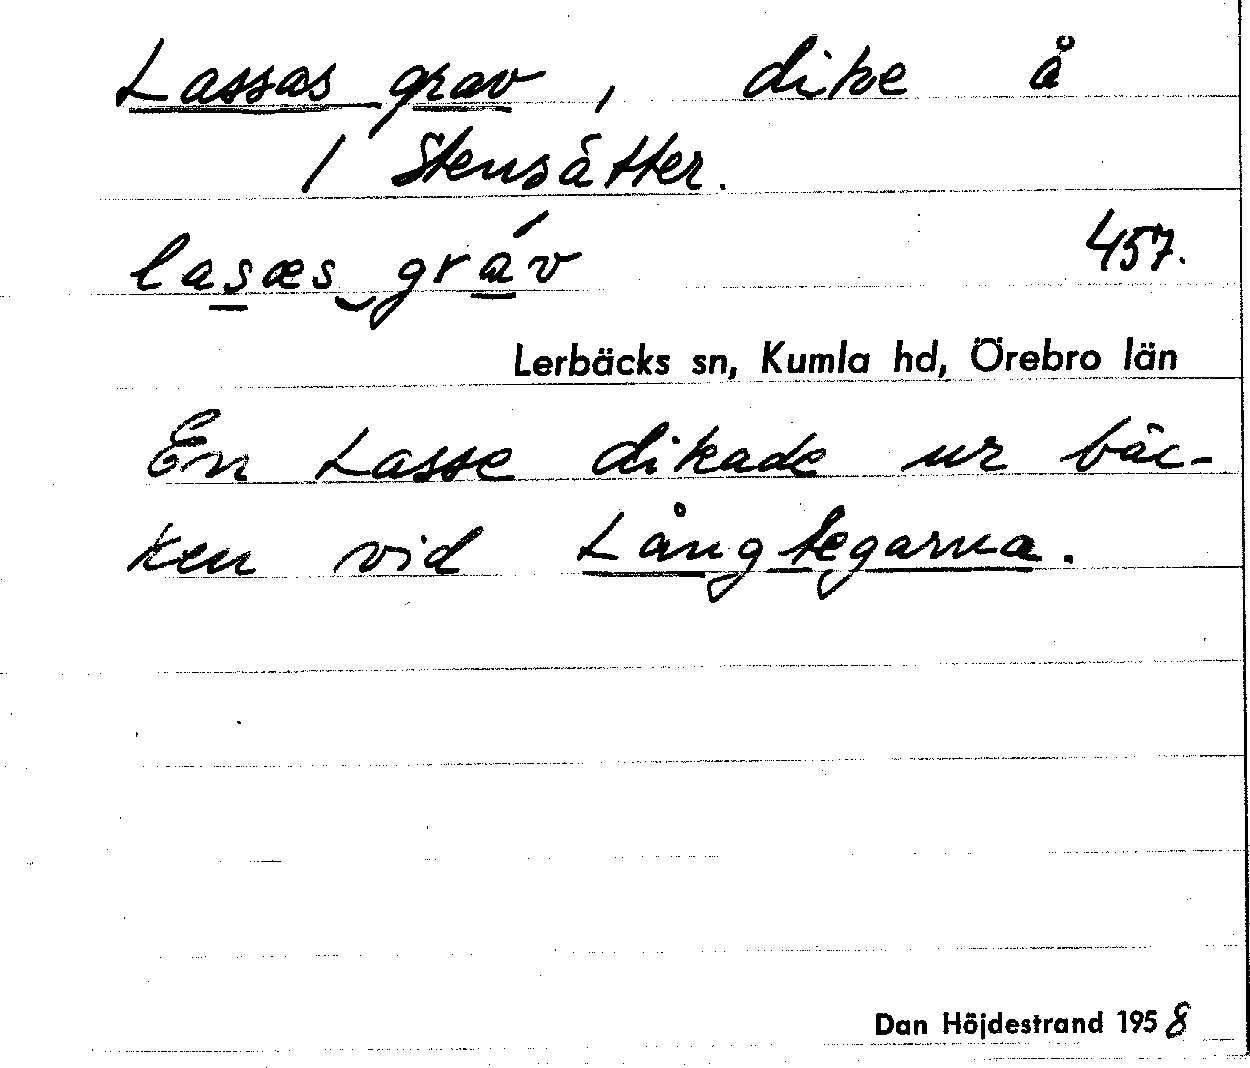 Lassas grav, dike å
/ Stensätter.
lasæs grav 457.
Lerbäcks sn, Kumla hd, Örebro län
En Lasse dikade ur bäc-
ken vid Långtegarna.
Dan Höjdestrand 1958